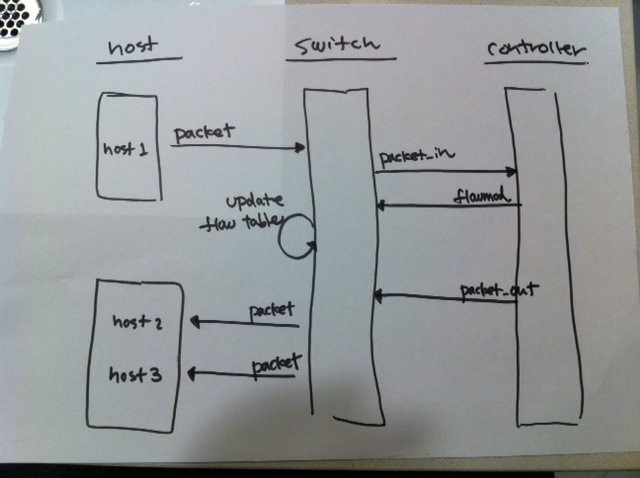 host
switch
controller
host 1
packet
packet_in
flowmod
update
flow tables
packet_out
host 2
packet
host 3
packet